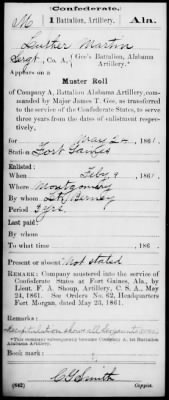 Confederate.
M 1 Battalion, Artillery. Ala.
Luther Martin
Sergt, Co. A, Gee's Battalion, Alabama Artillery.*
Appears on a
Muster Roll
of Company A, Battalion Alabama Artillery, commanded by Major James T. Gee, as transferred
to the service of the Confederate States, to serve
three years from the dates of enlistment respectively,
for May 24, 1861.
Station Fort Gaines
Enlisted:
When Feby 9, 1861.
Where Montgomery
By whom
Period 3 yrs.
Last paid:
By whom
To what time , 186 .
Present or absent Not stated
REMARK: Company mustered into the service of
Confederate States at Fort Gaines, Ala., by
Lieut. F. A. Shoup, Artillery, C. S. A., May
24, 1861. See Orders No. 62, Headquarters
Fort Morgan, dated May 23, 1861.
Remarks:
Recapitulation shows all
*This company subsequently became Company A, 1st Battalion Alabama Artillery.
Book mark:
(642) C G Smith
Copyist.